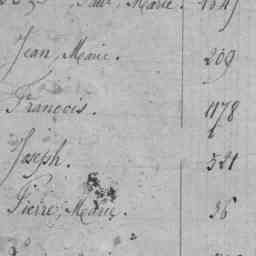 Paul, Marie.
Jean, Marie. 209
François. 1178
Joseph. 321
Pierre, Marie. 36